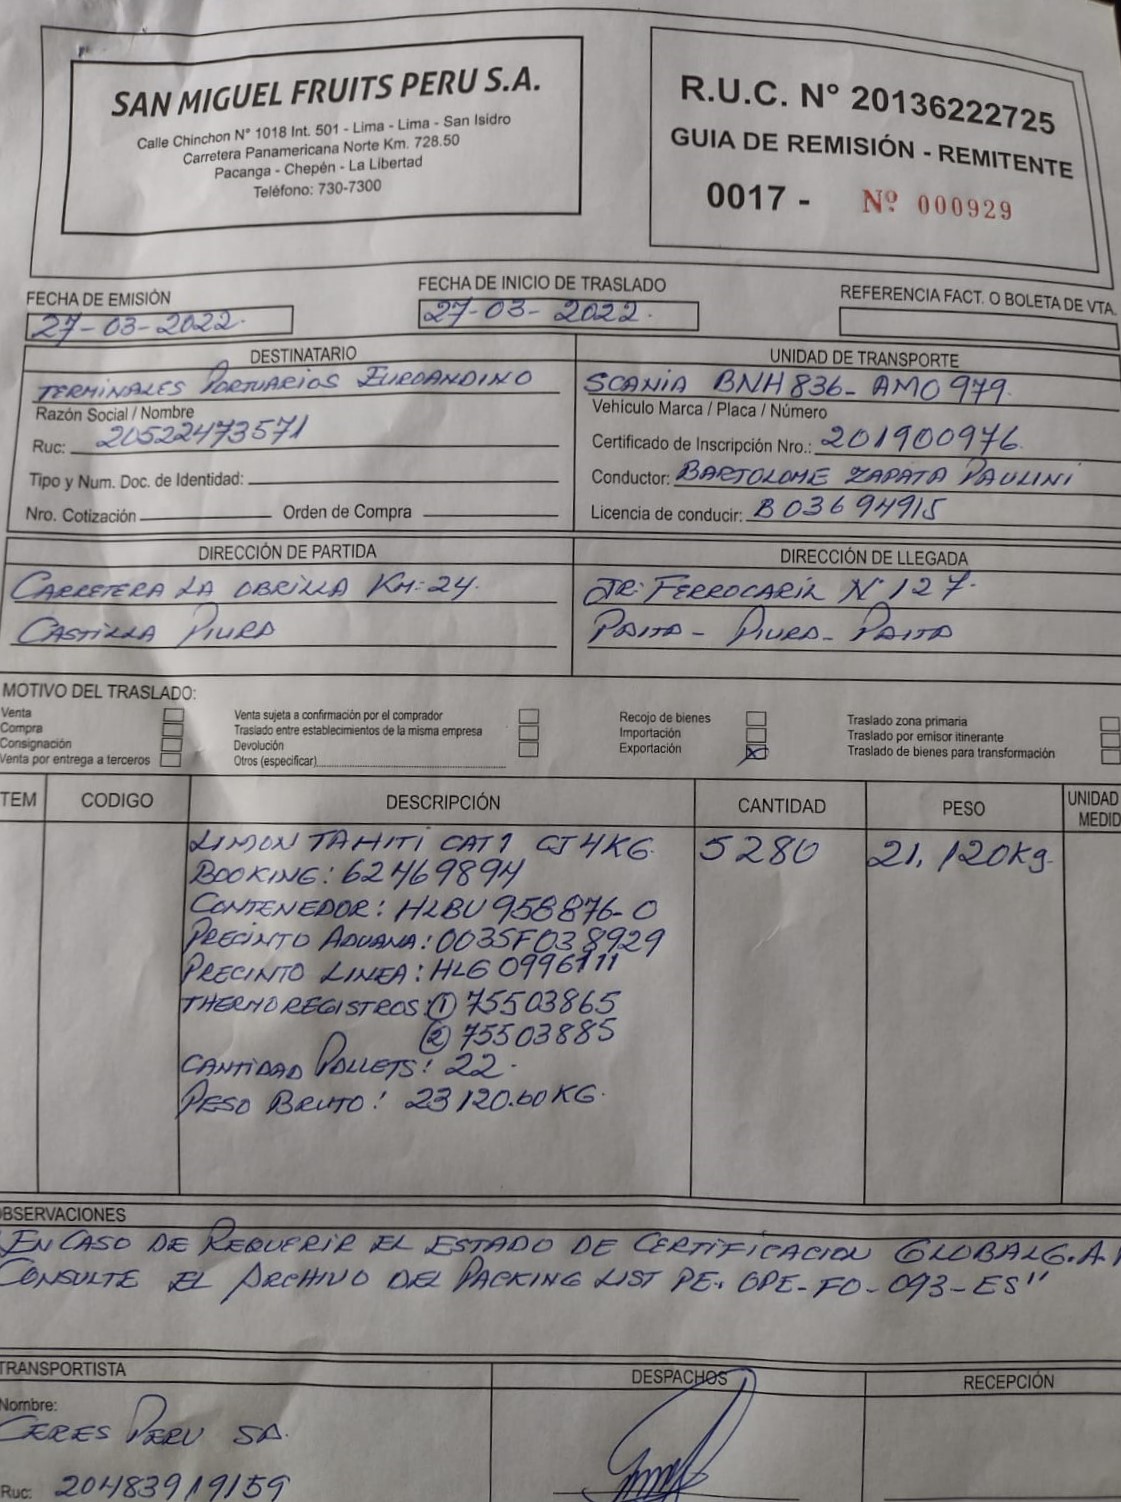 SAN MIGUEL FRUITS PERU S.A.
Calle Chinchon N° 1018 Int. 501 - Lima - Lima - San Isidro
Carretera Panamericana Norte Km. 728.50
Pacanga - Chepén - La Libertad
Teléfono: 730-7300
R.U.C. N° 20136222725
GUIA DE REMISIÓN - REMITENTE
0017 - Nº 000929
FECHA DE EMISIÓN
27-03-2022.
FECHA DE INICIO DE TRASLADO
27-03-2022.
REFERENCIA FACT. O BOLETA DE VTA.
DESTINATARIO
TERMINALES PORTUARIOS EUROANDINO
Razón Social / Nombre
Ruc: 20522473571
Tipo y Num. Doc. de Identidad:
Nro. Cotización Orden de Compra
UNIDAD DE TRANSPORTE
SCANIA BNH 836- AMO 979.
Vehículo Marca / Placa / Número
Certificado de Inscripción Nro.: 201900976.
Conductor: BARTOLOME ZAPATA PAULINI
Licencia de conducir: B03694915
DIRECCIÓN DE PARTIDA
CARRETERA LA OBRILLA KM: 24.
CASTILLA PIURA
DIRECCIÓN DE LLEGADA
JR: FERROCARIL Nº 127.
PAITA - PIURA - PAITA
MOTIVO DEL TRASLADO:
Venta
Compra
Consignación
Venta por entrega a terceros
Venta sujeta a confirmación por el comprador
Traslado entre establecimientos de la misma empresa
Devolución
Otros (especificar)
Recojo de bienes
Importación
Exportación X
Traslado zona primaria
Traslado por emisor itinerante
Traslado de bienes para transformación
TEM CODIGO DESCRIPCIÓN CANTIDAD PESO UNIDAD
MEDID
LIMON TAHITI CAT 1 CJ 4KG. 5280 21,120Kg.
BOOKING: 62469894
CONTENEDOR: HLBU 958876-0
PRECINTO ADUANA: 0035F038929
PRECINTO LINEA: HLG 0996111
THERMOREGISTROS: ① 75503865
② 75503885
CANTIDAD PALLETS: 22.
PESO BRUTO: 23120.60 KG.
OBSERVACIONES
"EN CASO DE REQUERIR EL ESTADO DE CERTIFICACION GLOBALG.A.
CONSULTE EL ARCHIVO DEL PACKING LIST PE. OPE-FO-093-ES"
TRANSPORTISTA
Nombre:
CERES PERU SA.
Ruc: 20483919159
DESPACHOS
RECEPCIÓN